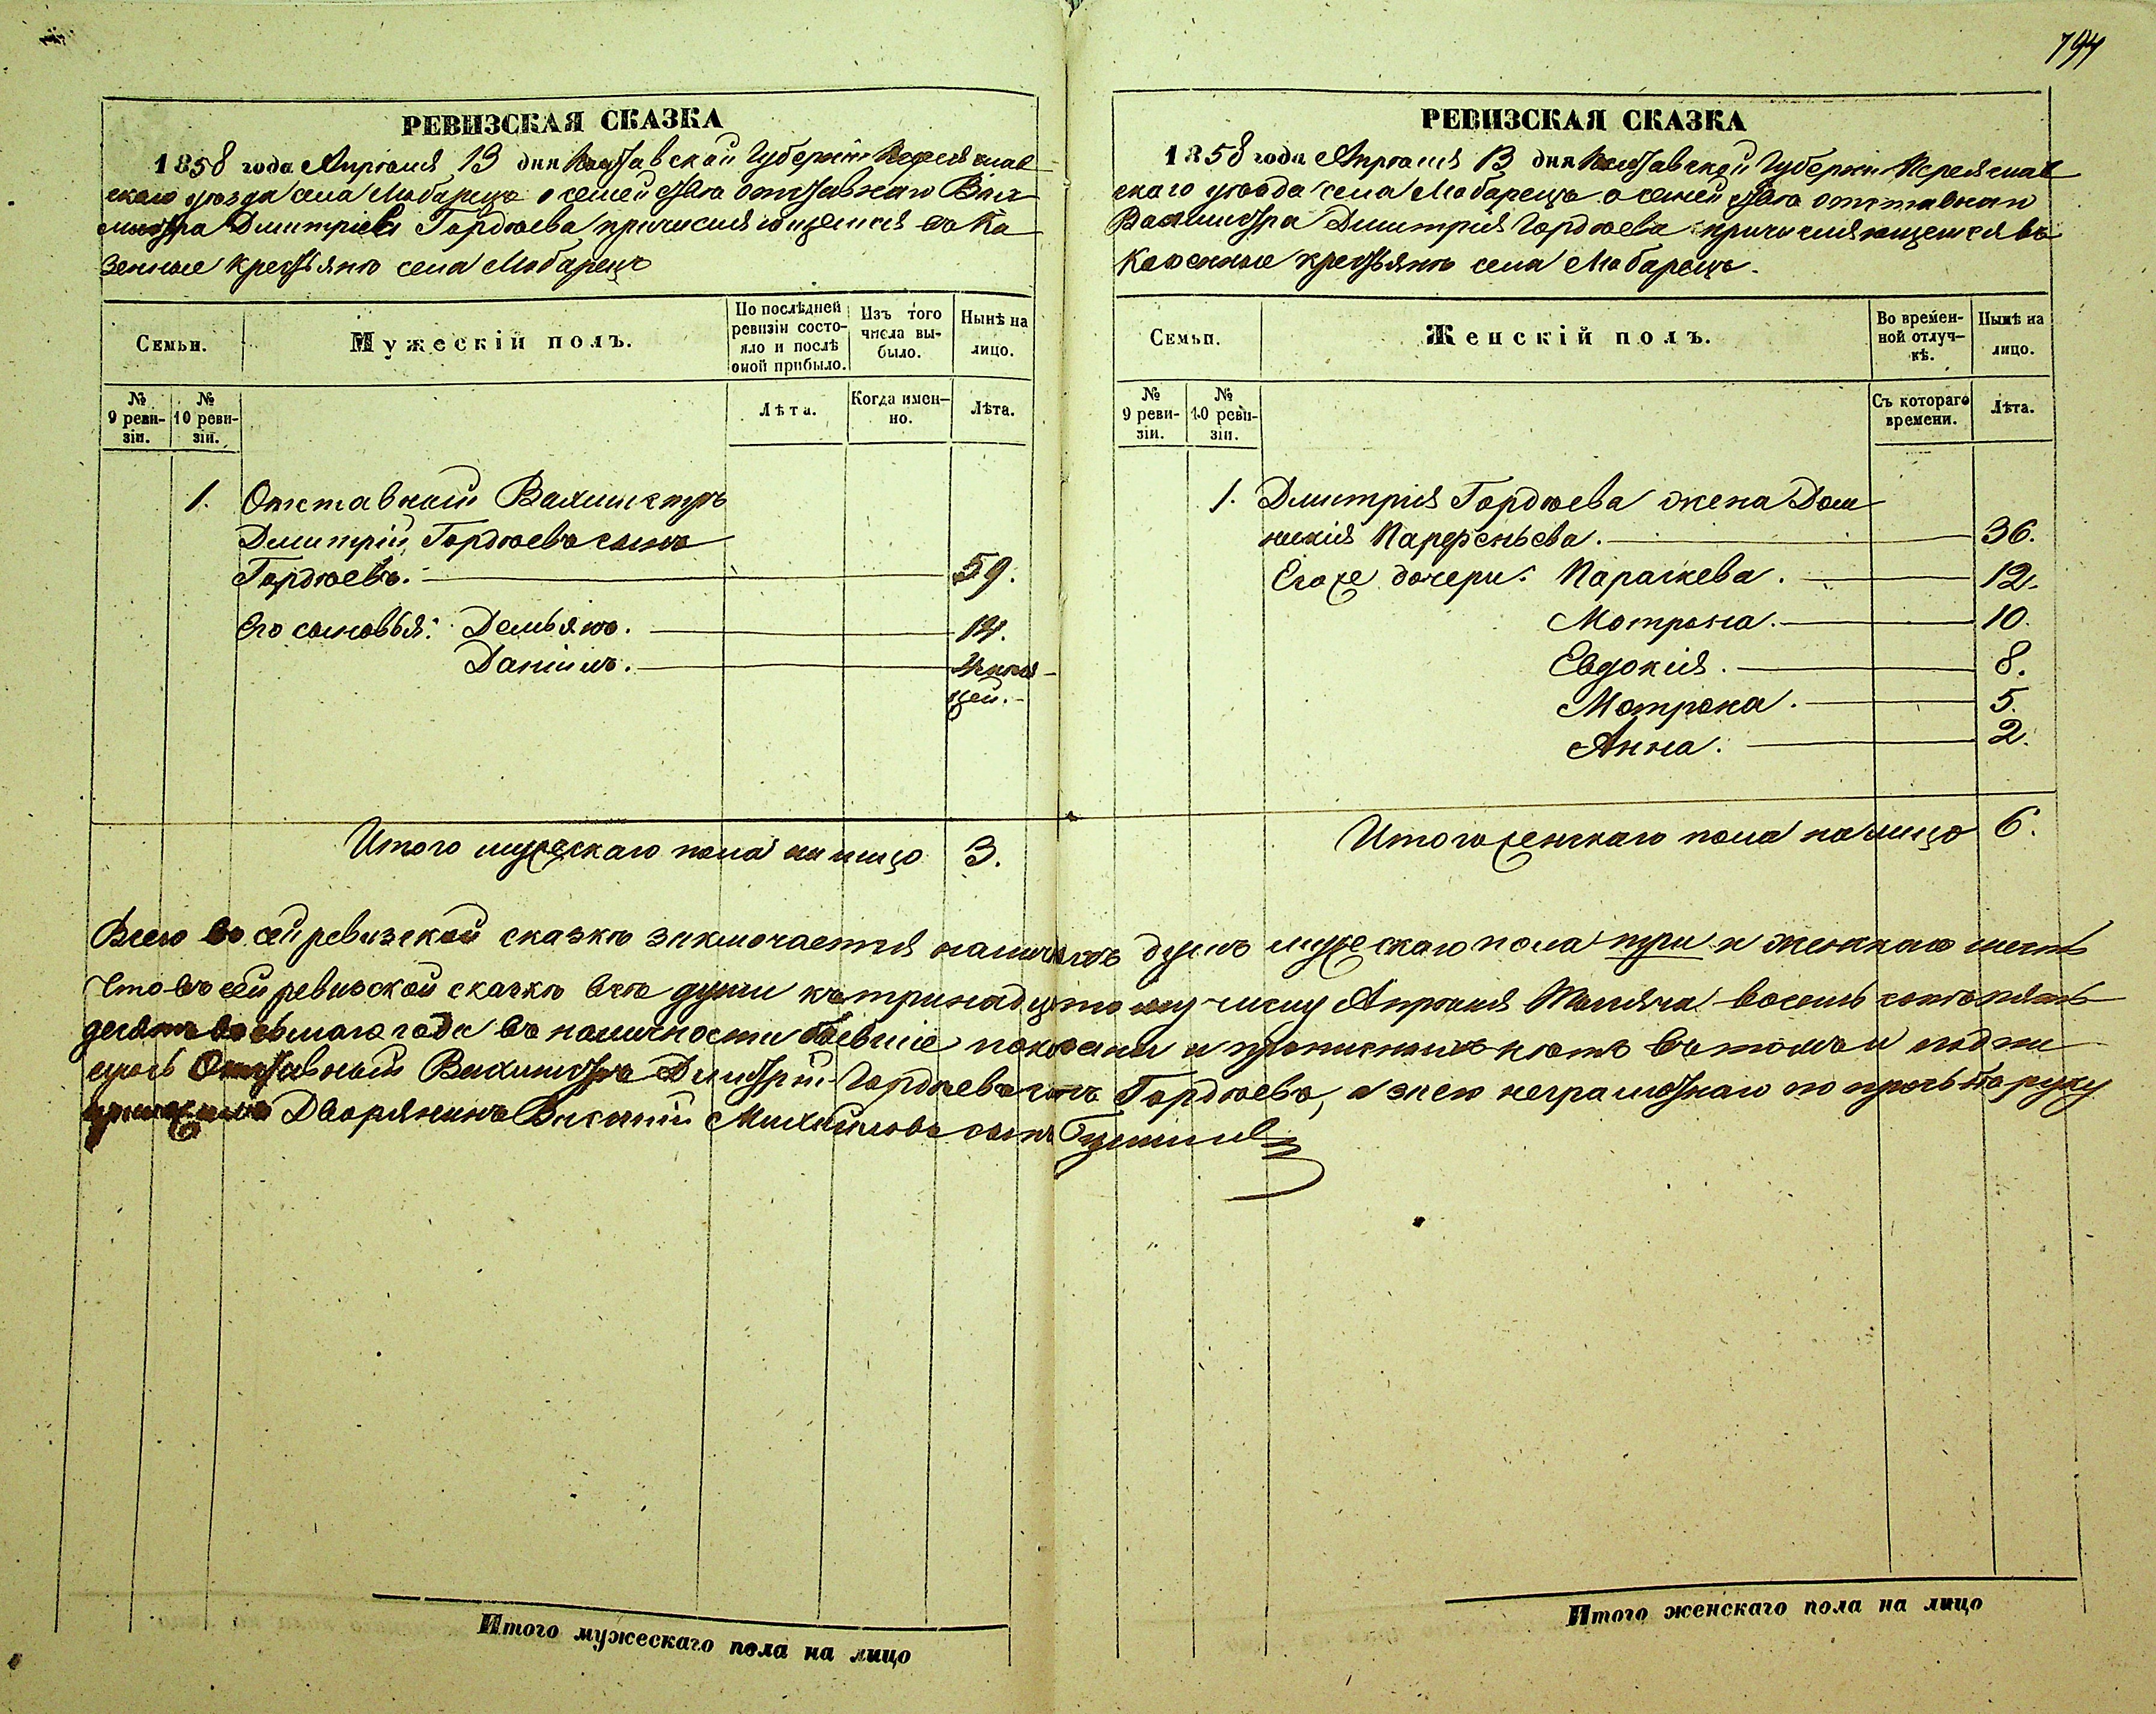 794
РЕВИЗСКАЯ СКАЗКА
1858 года Апрѣля 13 дня Полтавской Губерніи Переяслав
скаго уѣзда села Мабарецъ о семействѣ отставнаго Вах
мистра Дмитрія Гордѣева причисляющемся въ Ка
зенные крестьяне села Мабарецъ
Семьи.
Мужескій полъ.
По послѣдней ревизіи состояло и послѣ оной прибыло.
Изъ того числа выбыло.
Нынѣ на лицо.
№ 9 ревизіи.
№ 10 ревизіи.
Лѣта.
Когда именно.
Лѣта.
1. Отставный Вахмистръ
Дмитрій Гордѣевъ сынъ
Гордѣевъ. 59.
Его сыновья: Демьянъ. 14.
Даніилъ.
Итого мужескаго пола на лицо 3.
РЕВИЗСКАЯ СКАЗКА
1858 года Апрѣля 13 дня Полтавской Губерніи Переяслав
скаго уѣзда села Мабарецъ о семействѣ отставнаго
Вахмистра Дмитрія Гордѣева причисляющемся въ
Казенные крестьяне села Мабарецъ.
Семьи.
Женскій полъ.
Во временной отлучкѣ.
Нынѣ на лицо.
№ 9 ревизіи.
№ 10 ревизіи.
Съ котораго времени.
Лѣта.
1. Дмитрія Гордѣева жена Дом
никія Парфеньева. 36.
Егоже дочери: Параскева. 12.
Мотрона. 10.
Евдокія. 8.
Мотрона. 5.
Анна. 2.
Итого женскаго пола на лицо 6.
Всего въ сей ревизской сказкѣ заключается наличныхъ душъ мужескаго пола три и женскаго шесть
Что въ сей ревизской сказкѣ всѣ души къ тринадцатому числу Апрѣля Тысяча восемь сотъ пять
десятъ восьмаго года въ наличности бывшіе показаны и прописныхъ нѣтъ въ томъ и подпи
суюсь Отставный Вахмистръ Дмитрій Гордѣевъ сынъ Гордѣевъ, а за него неграмотнаго по прозьбѣ руку
приложилъ Дворянинъ Василій Михайловъ сынъ
Итого мужескаго пола на лицо
Итого женскаго пола на лицо